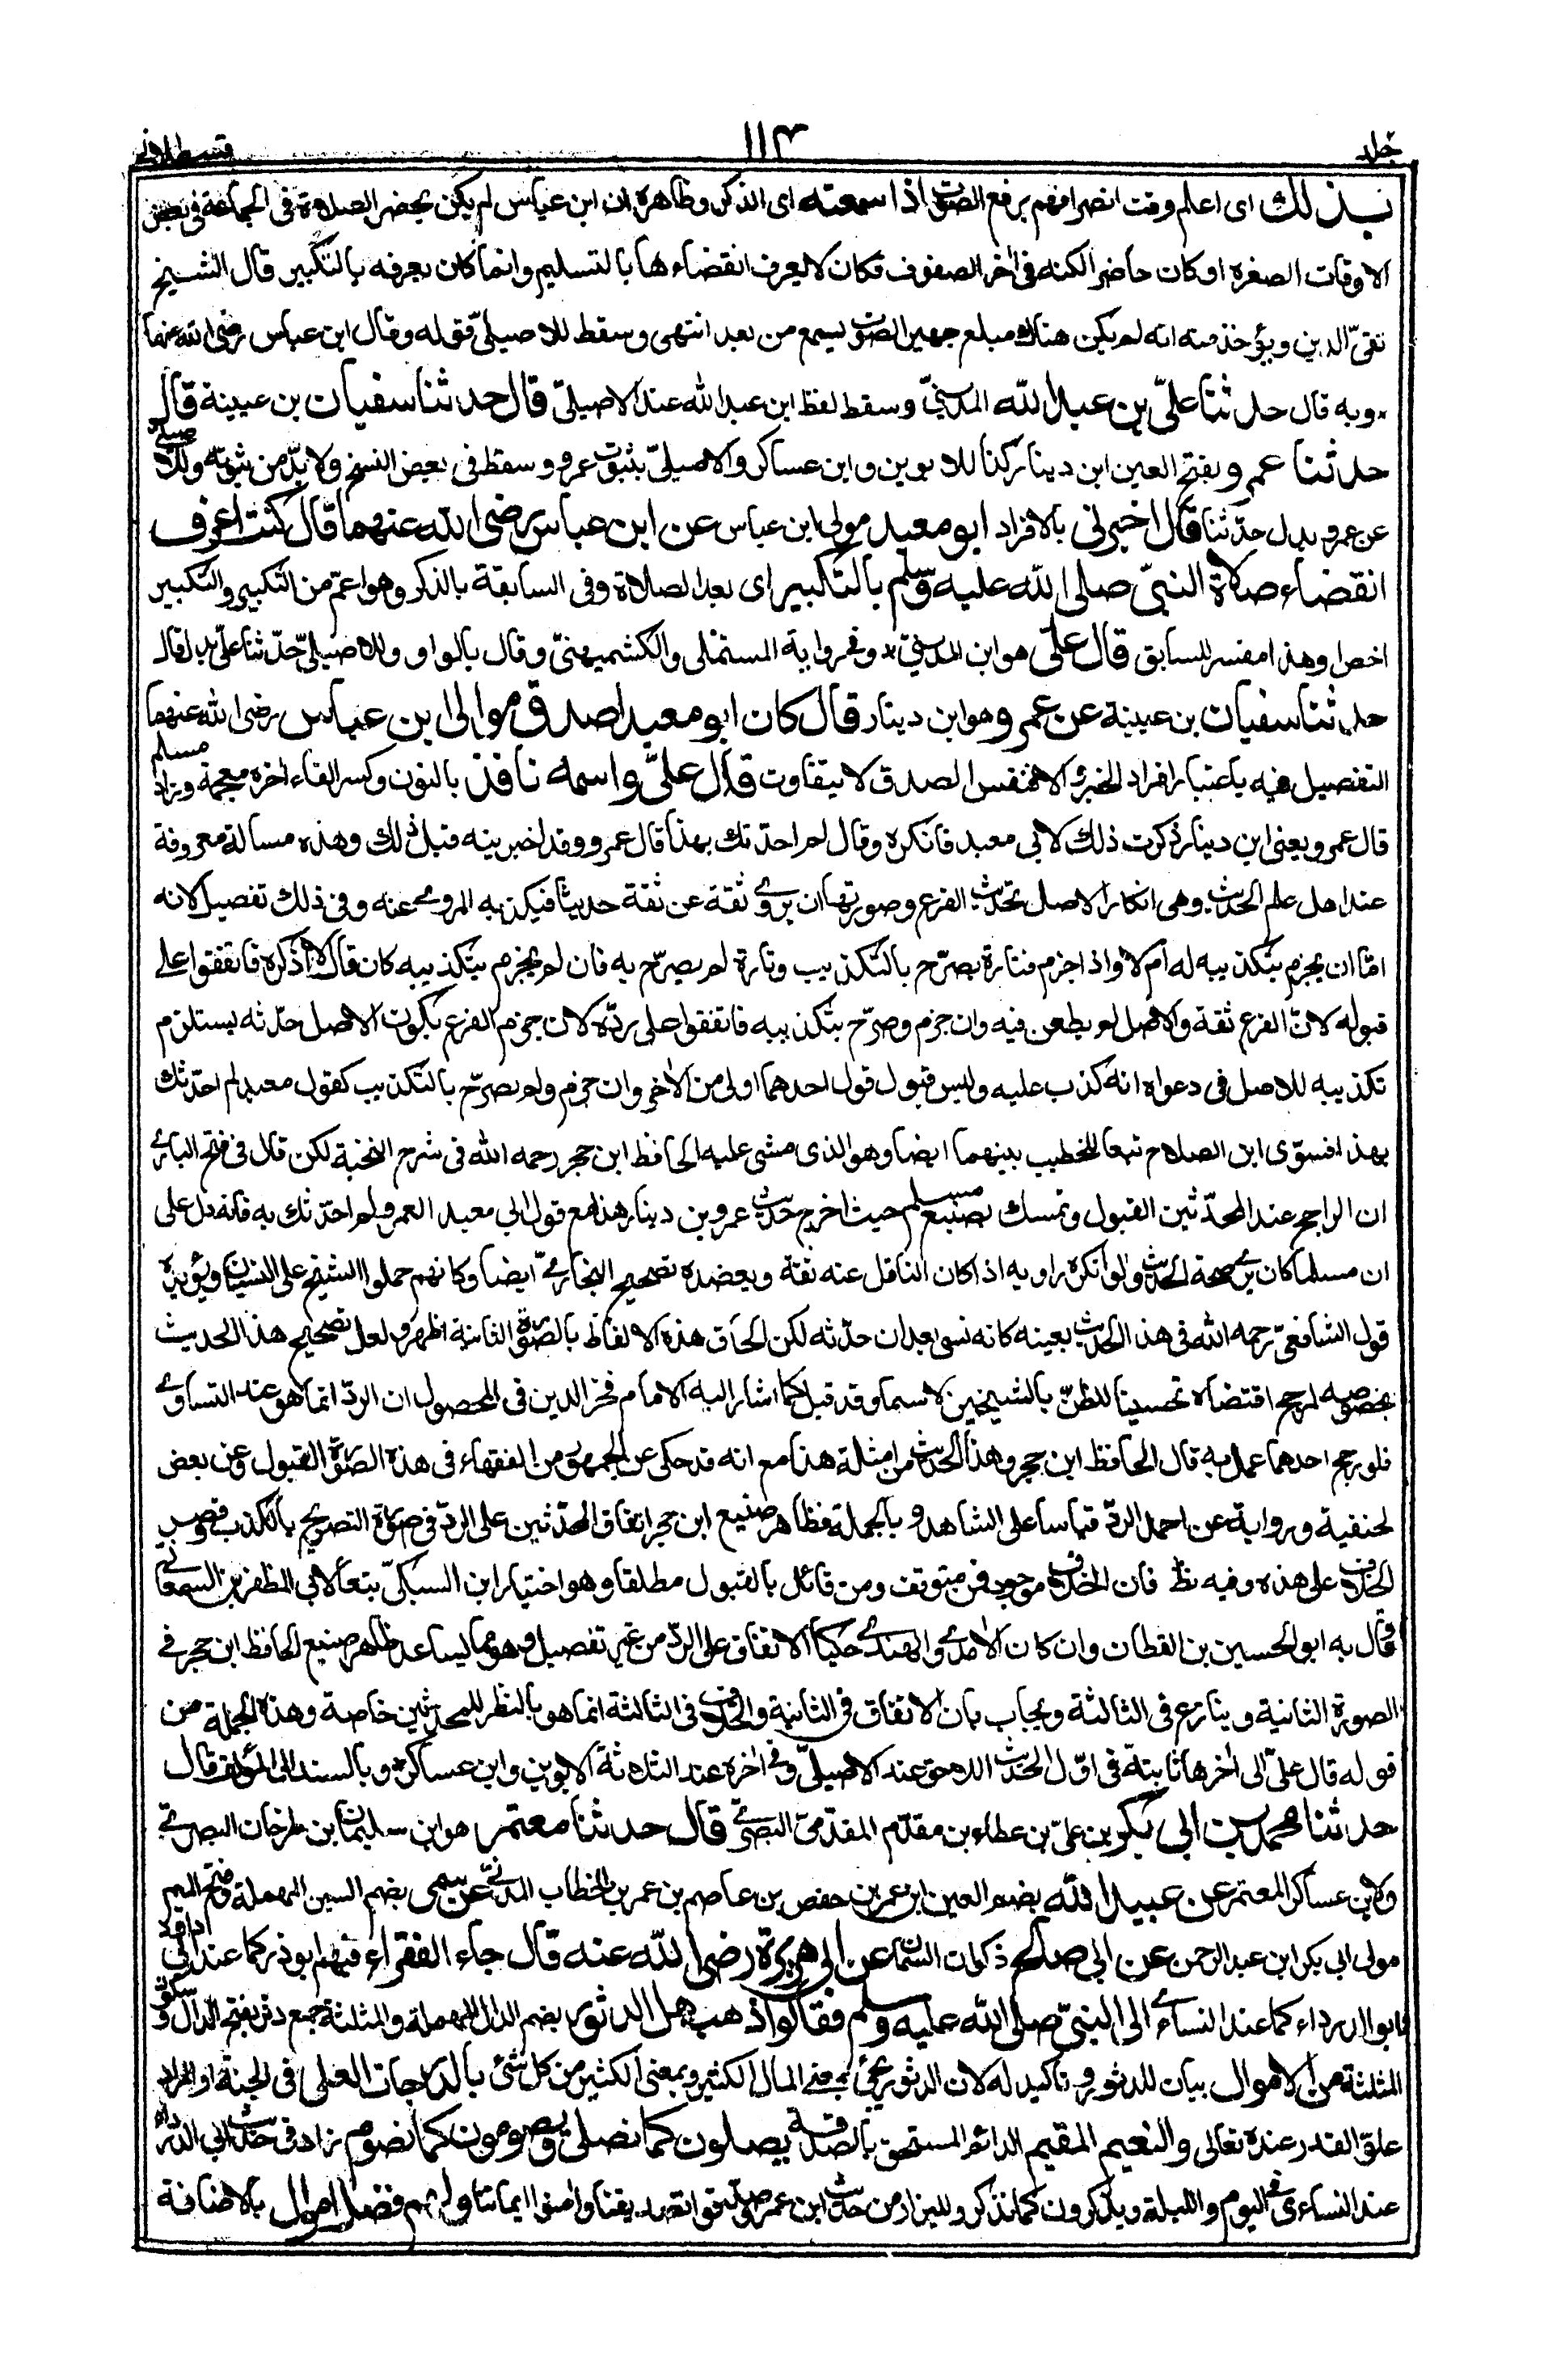 جلد ١١٣ قسطلانی
بذلك اى اعلم وقت انصرافهم برفع الصوت اذا سمعته اى الذكر وظاهره ان ابن عباس لم يكن يحضر الصلاة فى الجماعة فى بعض
الاوقات لصغره او كان حاضرا لكنه فى اخر الصفوف فكان لا يعرف انقضاءها بالتسليم وانما كان يعرفه بالتكبير قال الشيخ
تقىّ الدين ويؤخذ منه انه لم يكن هناك مبلغ جهير الصوت يسمع من بعد انتهى وسقط للاصيلىّ قوله وقال ابن عباس رضى الله عنهما
* وبه قال حدثنا علىّ بن عبد الله المدينىّ وسقط لفظ ابن عبد الله عند الاصيلىّ قال حدثنا سفيان بن عيينة قال
حدثنا عمرو بفتح العين ابن دينار كذا للابوين وابن عساكر والاصيلىّ بثبوت عمرو وسقط فى بعض النسخ ولا بدّ من ثبوته وللاصيلى
عن عمرو بدل حدّثنا قال اخبرنى بالافراد ابو معبد مولى ابن عباس عن ابن عباس رضى الله عنهما قال كنت اعرف
انقضاء صلاة النبىّ صلى الله عليه وسلّم بالتكبير اى بعد الصلاة وفى السابقة بالذكر وهو اعمّ من التكبير والتكبير
اخص وهذا مفسر للسابق قال علىّ هو ابن المدينىّ * وفى رواية المستملى والكشميهنىّ وقال بالواو وللاصيلىّ حدّثنا علىّ بدل قال
حدثنا سفيان بن عيينة عن عمرو وهو ابن دينار قال كان ابو معبد اصدق موالى ابن عباس رضى الله عنهما
التفضيل فيه باعتبار افراد الخبر والا فنفس الصدق لا يتفاوت قال علىّ واسمه نافذ بالنون وكسر الفاء اخره معجمة وزاد مسلم
قال عمرو يعنى ابن دينار ذكرت ذلك لابى معبد فانكره وقال لم احدّثك بهذا قال عمرو وقد اخبرنيه قبل ذلك وهذه مسالة معروفة
عند اهل علم الحديث وهى انكار الاصل تحديث الفرع وصورتها ان يروى ثقة عن ثقة حديثا فيكذبه المروى عنه وفى ذلك تفصيل لانه
امّا ان يجزم بتكذيبه له ام لا واذا جزم فتارة يصرّح بالتكذيب وتارة لم يصرّح به فان لم يجزم بتكذيبه كان قال لا اذكره فاتفقوا على
قبوله لانّ الفرع ثقة والاصل لم يطعن فيه وان جزم وصرّح بتكذيبه فاتفقوا على ردّه لان جزم الفرع بكون الاصل حدّثه يستلزم
تكذيبه للاصل فى دعواه انه كذب عليه وليس قبول قول احدهما اولى من الاخر وان جزم ولم يصرّح بالتكذيب كقول معبد لم احدّثك
بهذا فسوّى ابن الصلاح تبعا للخطيب بينهما ايضا وهو الذى مشى عليه الحافظ ابن حجر رحمه الله فى شرح النخبة لكن قال فى فتح البارى
ان الراجح عند المحدّثين القبول وتمسك بصنيع مسلم حيث اخرج حديث عمرو بن دينار هذا مع قول ابى معبد لعمرو لم احدّثك به فانه دل على
ان مسلما كان يرى صحة الحديث ولو انكره راويه اذا كان الناقل عنه ثقة ويعضده تصحيح البخارىّ ايضا وكانهم حملوا الشيخ على النسيان ويؤيده
قول الشافعىّ رحمه الله فى هذا الحديث بعينه كانه نسى بعد ان حدّثه لكن الحاق هذه الالفاظ بالصورة الثانية اظهر ولعل تصحيح هذا الحديث
بخصوصه لمرجح اقتضاه تحسينا للظنّ بالشيخين لا سيما وقد قبل كما اشار اليه الامام فخر الدين فى المحصول ان الردّ انما هو عند التساوى
فلو رجح احدهما عمل به قال الحافظ ابن حجر وهذا الحديث من امثلة هذا مع انه قد حكى عن الجمهور من الفقهاء فى هذه الصورة القبول وعن بعض
الحنفية ورواية عن احمد الردّ قياسا على الشاهد وبالجملة فظاهر صنيع ابن حجر اتفاق المحدّثين على الردّ فى صورة التصريح بالكذب وقصر
الخلاف على هذه وفيه نظر فان الخلاف موجود فمن متوقف ومن قائل بالقبول مطلقا وهو اختيار ابن السبكىّ تبعا لابى المظفر بن السمعانى
وقال به ابو الحسين بن القطان وان كان الامدى والهندى حكيا الاتفاق على الردّ من غير تفصيل وهو مما يساعد ظاهر صنيع الحافظ ابن حجر فى
الصورة الثانية وينازع فى الثالثة ويجاب بان الاتفاق فى الثانية والخلاف فى الثالثة انما هو بالنظر للمحدثين خاصة وهذه الجملة من
قوله قال علىّ الى اخرها ثابتة فى اوّل الحديث اللاحق عند الاصيلىّ وفى اخره عند الثلاثة الابوين وابن عساكر * وبالسند الى المؤلف قال
حدثنا محمد بن ابى بكر بن علىّ بن عطاء بن مقدّم المقدّمى البصرىّ قال حدثنا معتمر هو ابن سليمان بن طرخان البصرىّ
ولابن عساكر المعتمر عن عبيد الله بضم العين ابن عمر بن حفص بن عاصم بن عمر بن الخطاب المدنىّ عن سمى بضم السين المهملة وفتح الميم
مولى ابى بكر ابن عبد الرحمن عن ابى صالح ذكوان السمان عن ابى هريرة رضى الله عنه قال جاء الفقراء فيهم ابو ذر كما عند ابى داود
وابو الدرداء كما عند النساءى الى النبىّ صلى الله عليه وسلم فقالوا ذهب اهل الدثور بضم الدال المهملة والمثلثة جمع دثر بفتح الدال وسكون
المثلثة من الاموال بيان للدثور وتاكيد له لان الدثور يجئ بمعنى المال الكثير وبمعنى الكثير من كل شئ بالدرجات العلى فى الجنة او المراد
علوّ القدر عنده تعالى والنعيم المقيم الدائم المستحق بالصدقة يصلون كما نصلى ويصومون كما نصوم زاد فى حديث ابى الدرداء
عند النساءى فى اليوم والليلة ويذكرون كما نذكر وللبزار من حديث ابن عمر صدّقوا تصديقنا وامنوا ايماننا ولهم فضل اموال بالاضافة